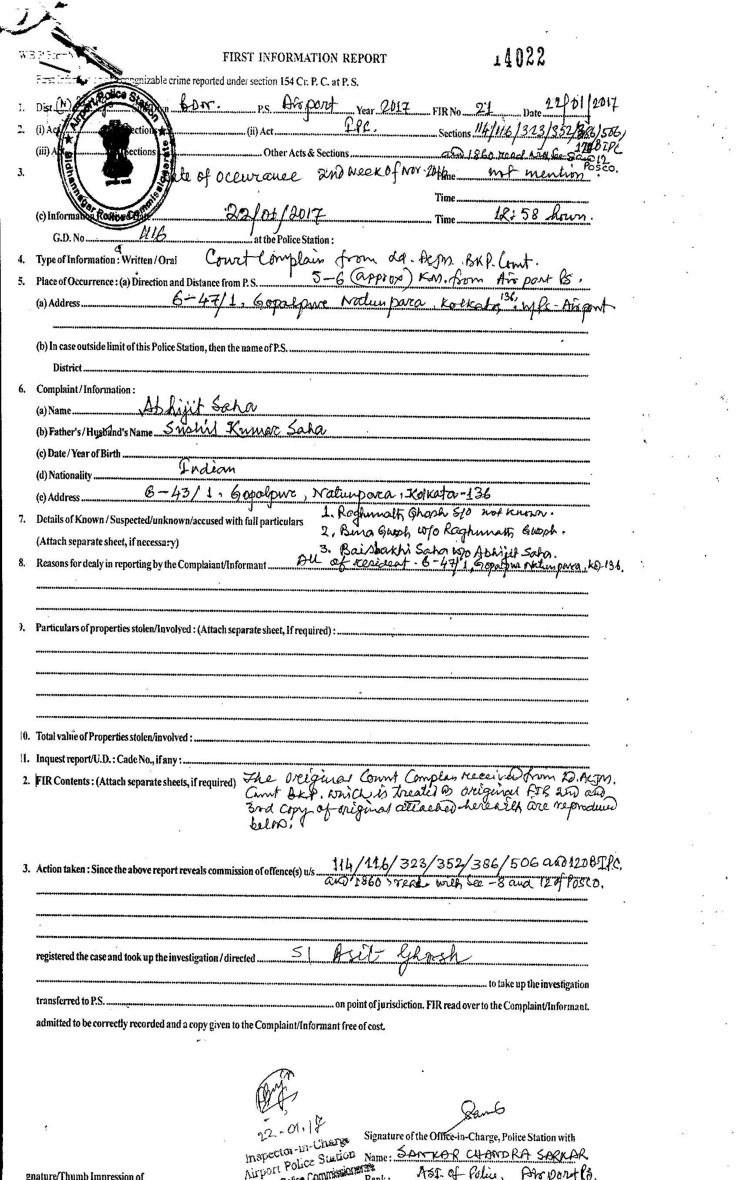 FIRST INFORMATION REPORT
14022
cognizable crime reported under section 154 Cr. P. C. at P. S.
1. Dist. (N) Bdn. P.S. Airport Year 2017 FIR No 21 Date 22/01/2017
2. (i) Act Sections (ii) Act IPC. Sections 114/116/323/352/386/506,
120B IPC
(iii) Other Acts & Sections and 1860 read with Sec 8 and 12 POSCO.
Airport Police Station
Bidhannagar Police Commissionerate
3. Date of occurance 2nd week of Nov. 2016 Time not mention.
Time
(c) Information Date 22/01/2017 Time 12:58 hours.
G.D. No. 1116 at the Police Station :
4. Type of Information : Written / Oral Court Complain from Ld. ACJM. BKP. Court.
5. Place of Occurrence : (a) Direction and Distance from P. S. 5-6 (approx) KM. from Air port PS.
(a) Address 6-47/1, Gopalpure Natunpara, Kolkata 136, w/PS- Airport
(b) In case outside limit of this Police Station, then the name of P.S.
District
6. Complaint / Information :
(a) Name Abhijit Saha
(b) Father's / Husband's Name Sushil Kumar Saha
(c) Date / Year of Birth
(d) Nationality Indian
(e) Address 6-43/1, Gopalpure, Natunpara, Kolkata-136
7. Details of Known / Suspected/unknown/accused with full particulars 1. Raghunath Ghosh S/O not known.
2. Bina Ghosh W/O Raghunath Ghosh.
(Attach separate sheet, if necessary) 3. Baishakhi Saha W/O Abhijit Saha.
8. Reasons for dealy in reporting by the Complaint/Informant All of resident - 6-47/1, Gopalpur Natunpara, KO-136.
9. Particulars of properties stolen/Involved : (Attach separate sheet, If required) :
10. Total value of Properties stolen/involved :
11. Inquest report/U.D. : Cade No., if any :
2. FIR Contents : (Attach separate sheets, if required) The original Court Complain received from Ld. ACJM.
Court BKP. which is treated as original FIR 2nd and
3rd copy of original attached herewith are reproduced
below;
3. Action taken : Since the above report reveals commission of offence(s) u/s 114/116/323/352/386/506 and 120B IPC.
and 1860 read with Sec -8 and 12 of POSCO.
registered the case and took up the investigation / directed SI Asit Ghosh
to take up the investigation
transferred to P.S. on point of jurisdiction. FIR read over to the Complaint/Informant.
admitted to be correctly recorded and a copy given to the Complaint/Informant free of cost.
22-01-17
Inspector-in-Charge
Airport Police Station
Police Commissionerate
Signature of the Office-in-Charge, Police Station with
Name : SANKAR CHANDRA SARKAR
Rank : ASI. of Police, Airport PS.
gnature/Thumb Impression of